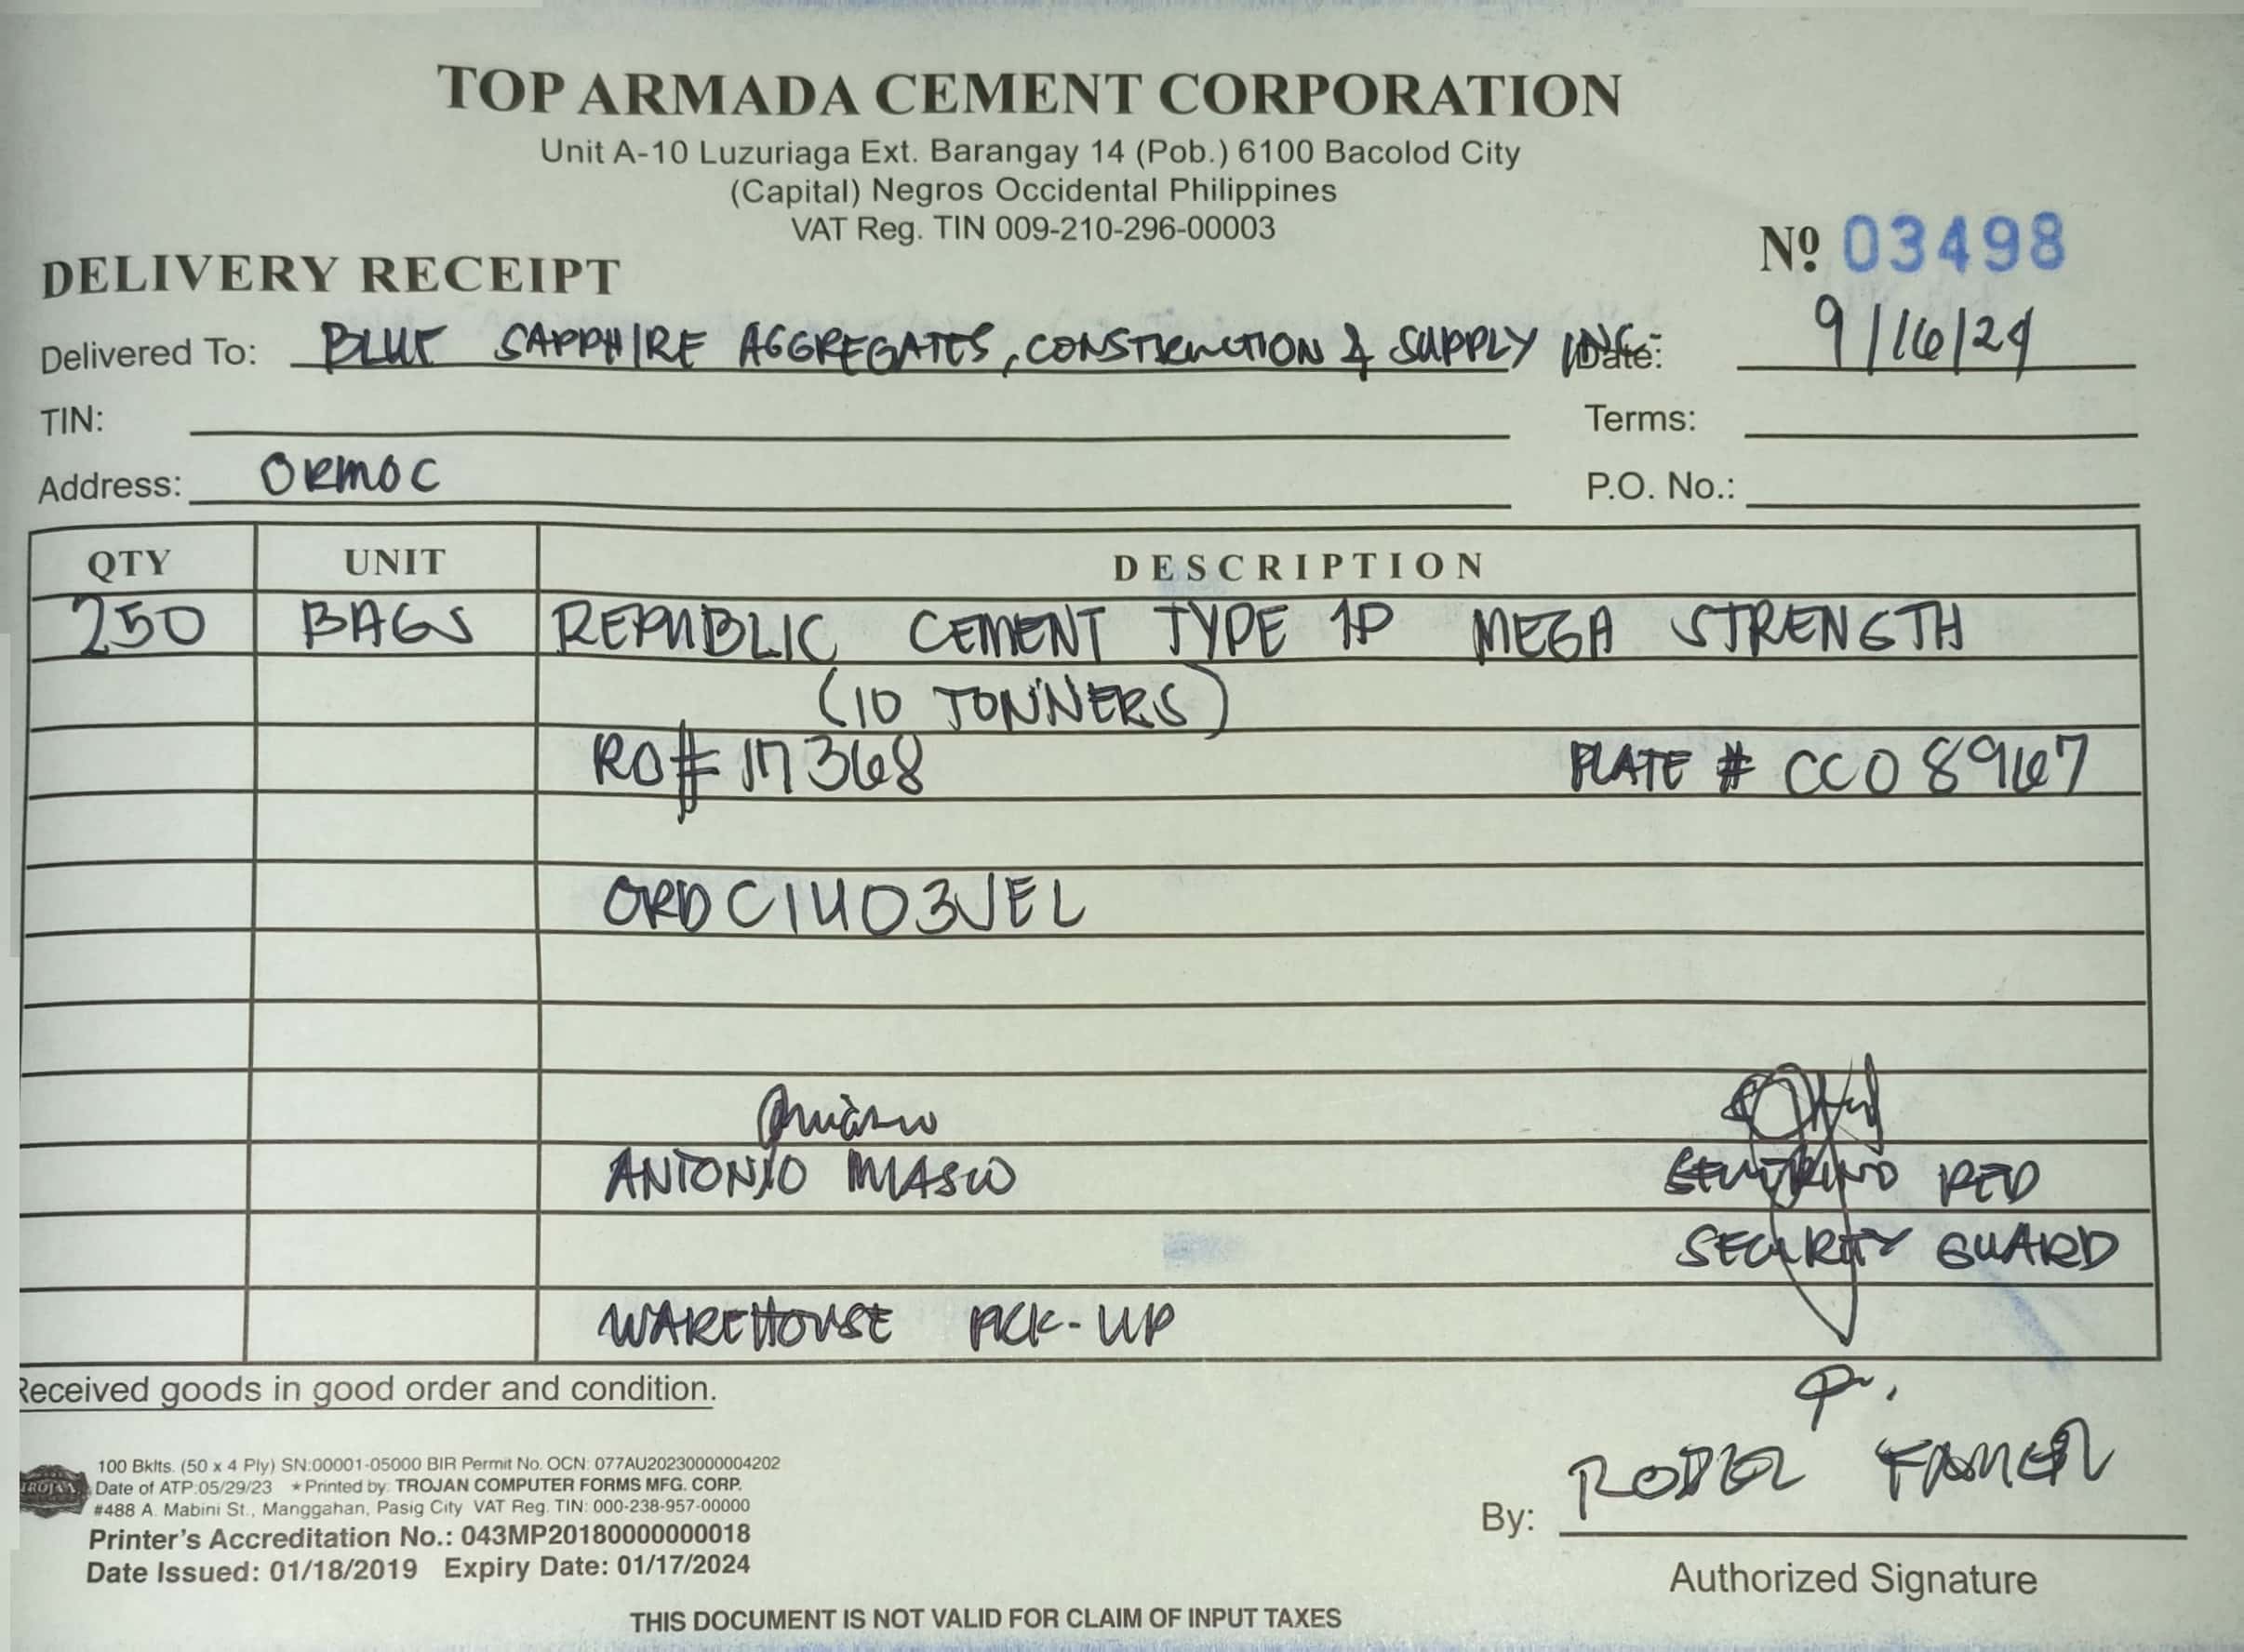 TOP ARMADA CEMENT CORPORATION
Unit A-10 Luzuriaga Ext. Barangay 14 (Pob.) 6100 Bacolod City
(Capital) Negros Occidental Philippines
VAT Reg. TIN 009-210-296-00003
Nº 03498
DELIVERY RECEIPT
Delivered To: BLUE SAPPHIRE AGGREGATES, CONSTRUCTION & SUPPLY INC. Date: 9/16/24
TIN: Terms:
Address: ORMOC P.O. No.:
QTY UNIT DESCRIPTION
250 BAGS REPUBLIC CEMENT TYPE 1P MEGA STRENGTH
(10 TONNERS)
RO# 17368 PLATE # CCO 8967
ORDC1403JEL
ANTONIO MIASCO RED
SECURITY GUARD
WAREHOUSE PICK-UP
Received goods in good order and condition.
TROJAN
100 Bklts. (50 x 4 Ply) SN:00001-05000 BIR Permit No. OCN: 077AU20230000004202
Date of ATP:05/29/23 ★Printed by: TROJAN COMPUTER FORMS MFG. CORP.
#488 A. Mabini St., Manggahan, Pasig City VAT Reg. TIN: 000-238-957-00000
Printer's Accreditation No.: 043MP20180000000018
Date Issued: 01/18/2019 Expiry Date: 01/17/2024
By: RODEL
Authorized Signature
THIS DOCUMENT IS NOT VALID FOR CLAIM OF INPUT TAXES